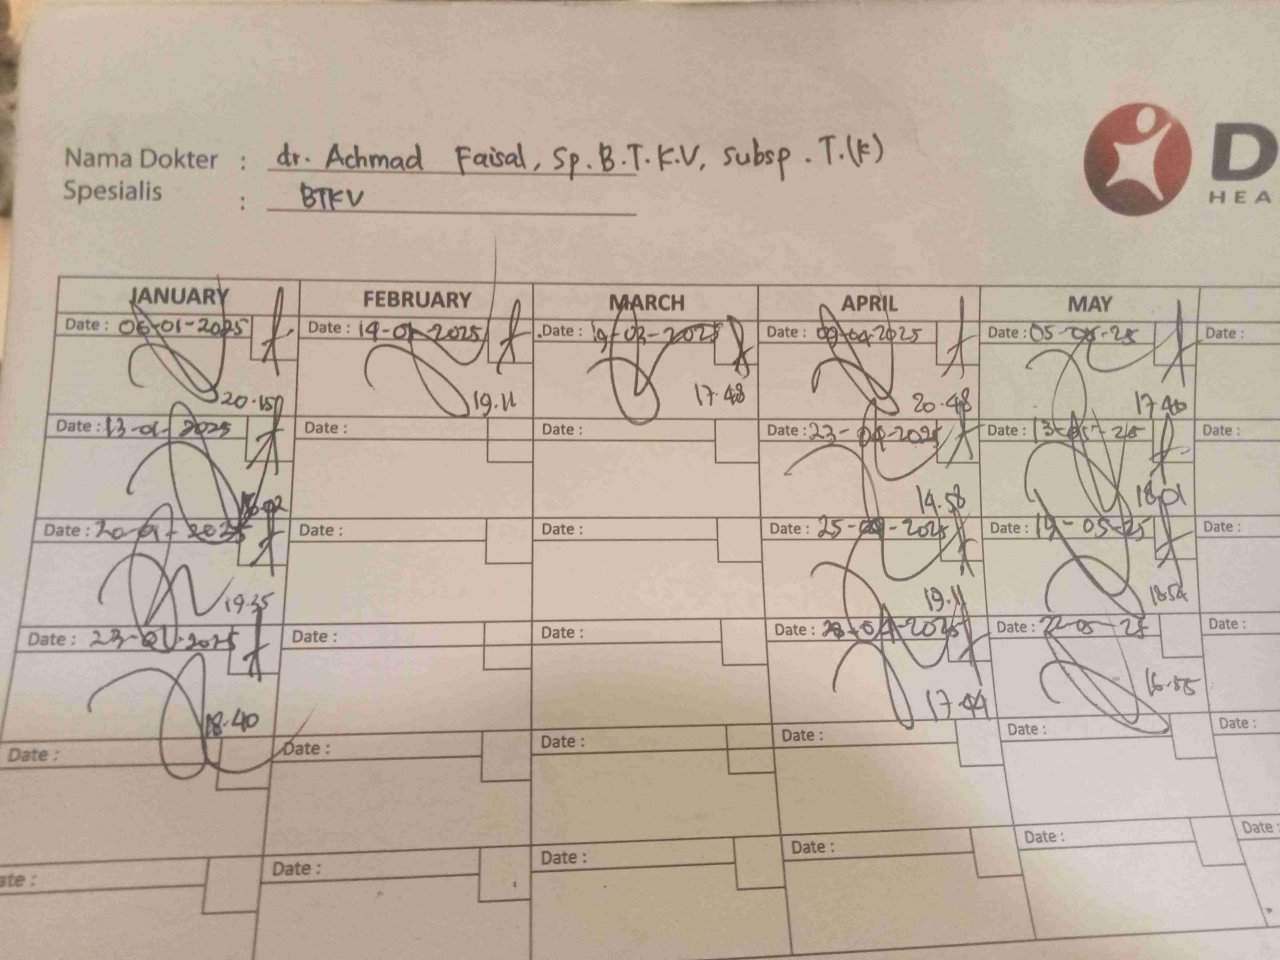 Nama Dokter : dr. Achmad Faisal, Sp.B.T.K.V, subsp. T.(K)
Spesialis : BTKV
D
HEA
JANUARY FEBRUARY MARCH APRIL MAY
Date : 06-01-2025 Date : 19-02-2025 Date : 19-03-2025 Date : 09-04-2025 Date : 05-05-25 Date :
20.15 19.11 17.48 20.48 17.40
Date : 13-01-2025 Date : Date : Date : 23-04-2025 Date : 13-05-25 Date :
18.02 14.58 18.01
Date : 20-01-2025 Date : Date : Date : 25-04-2025 Date : 19-05-25 Date :
19.35 19.11 18.54
Date : 23-01-2025 Date : Date : Date : 28-04-2025 Date : 22-05-25 Date :
18.40 17.44 16.55
Date : Date : Date : Date : Date : Date :
ate : Date : Date : Date : Date : Date :